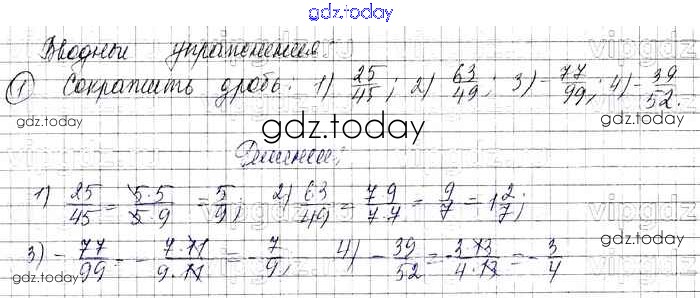 gdz.today
Вводные упражнения
① Сократить дробь. 1) 25/45; 2) 63/49; 3) -77/99; 4) -39/52.
gdz.today
gdz.today
gdz.today
Решение:
1) 25/45 = 5·5/5·9 = 5/9; 2) 63/49 = 7·9/7·7 = 9/7 = 1 2/7;
3) -77/99 = -7·11/9·11 = -7/9; 4) -39/52 = -3·13/4·13 = -3/4
gdz.today
gdz.today